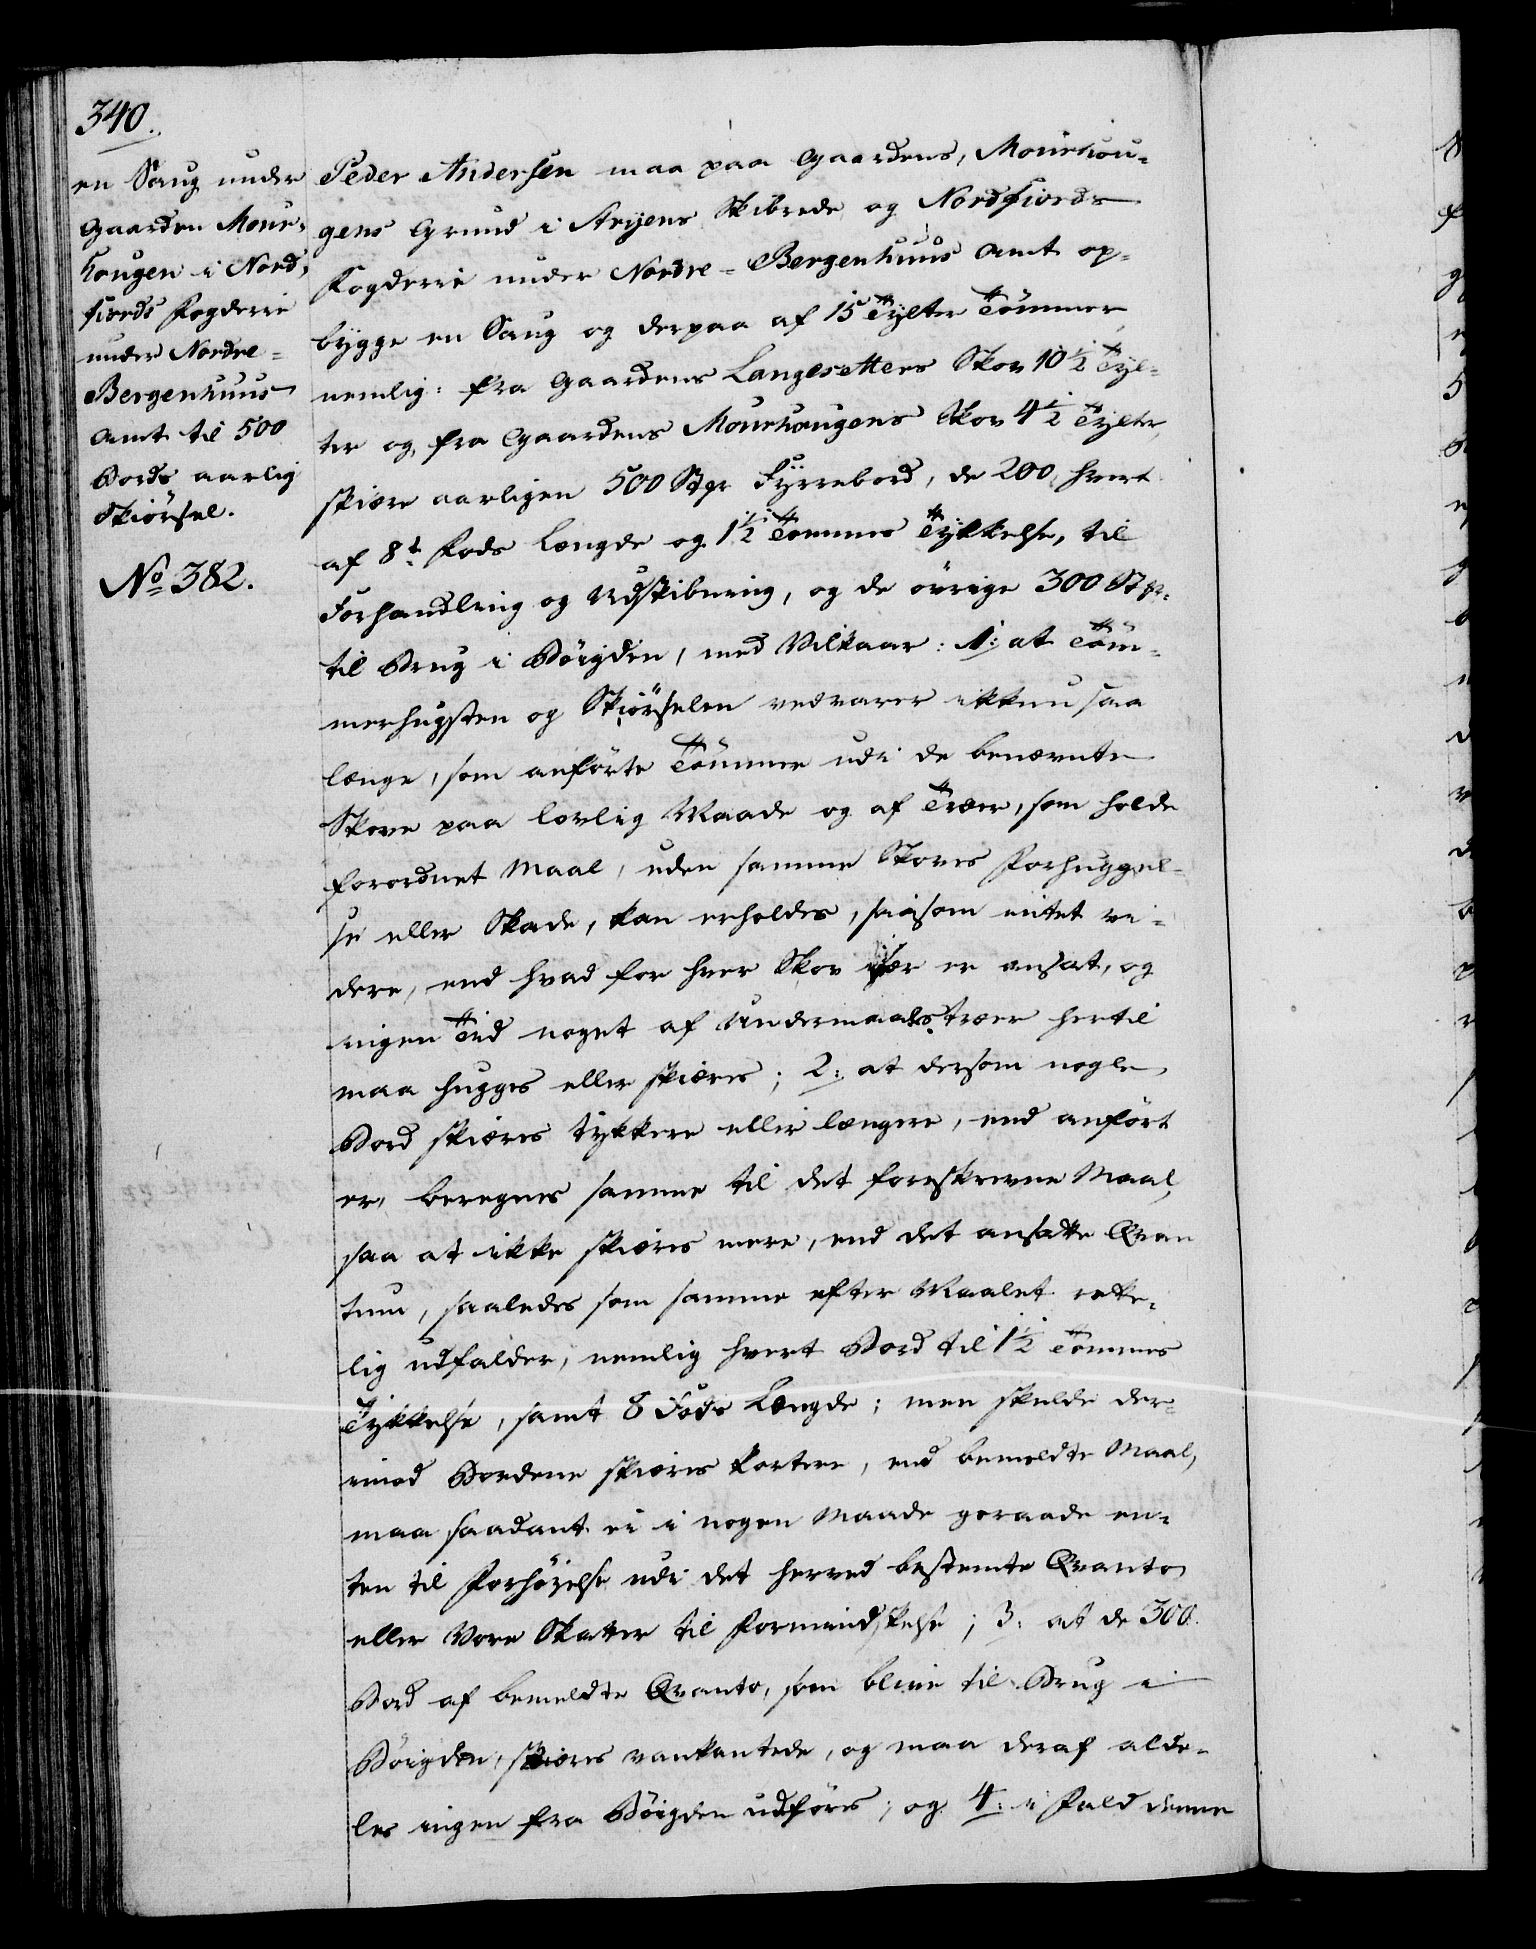 340.
en Saug under
Gaarden Mour-
hougen i Nord-
fiords Fogderie
under Nordre-
Bergenhuus
Amt til 500
Bords aarlig
Skiørsel.
No 382.
Peder Andersen maa paa Gaardens, Mourhou-
gens Grund i Skibrede og Nordfiords
Fogderie under Nordre-Bergenhuus Amt op-
bygge en Saug og derpaa af 15 Tylter Tømmer,
nemlig: fra Gaardens Langesetters Skov 10½ Tyl-
ter og fra Gaardens Mourhougens Skov 4½ Tylter,
skiære aarligen 500 Stkr Fyrrebord, de 200, hvert
af 8t Fods Længde og 1½ Tommes Tykkelse, til
Forhandling og Udskibning, og de øvrige 300 Stkr.
til Brug i Bøigden, med Vilkaar: 1: at Tøm-
merhugsten og Skiørselen vedvarer ikkun saa
længe, som anførte Tømmer udi de benævnte
Skove paa lovlig Maade og af Træer, som holde
forordnet Maal, uden samme Skoves Forhuggel-
se eller Skade, kan erholdes, saasom intet vi-
dere, end hvad for hver Skov især er ansat, og
ingen Tid noget af Undermaalstræer hertil
maa hugges eller skiæres; 2: at dersom nogle
Bord skiæres tykkere eller længere, end anført
er, beregnes samme til det foreskrevne Maal,
saa at ikke skiæres mere, end det ansatte Qvan
tum, saaledes som samme efter Maalet rette-
lig udfalder, nemlig hvert Bord til 1½ Tommes
Tykkelse, samt 8 Fods Længde; men skulde der-
imod Bordene skiæres kortere, end bemeldte Maal,
maa saadant ei i nogen Maade geraade en-
ten til Forhøjelse udi det herved bestemte Qvanto
eller Vore Skatter til Formindskelse; 3: at de 300.
Bord af bemeldte Qvanto, som blive til Brug i
Bøigden, skiæres vankantede, og maa deraf alde-
les ingen fra Bøigden udføres; og 4: i Fald denne